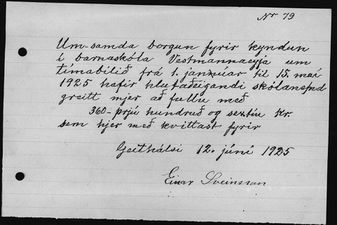 Nr 79
Um-samda borgun fyrir kyndun
í barnaskóla Vestmannaeyja um
tímabilið frá 1. janúar til 15. maí
1925 hafir hlutaðeigandi skólanefnd
greitt mjer að fullu með
360- þrjú hundruð og sextíu Kr.
sem hjer með kvittast fyrir
Geithálsi 12. júní 1925
Einar Sveinsson